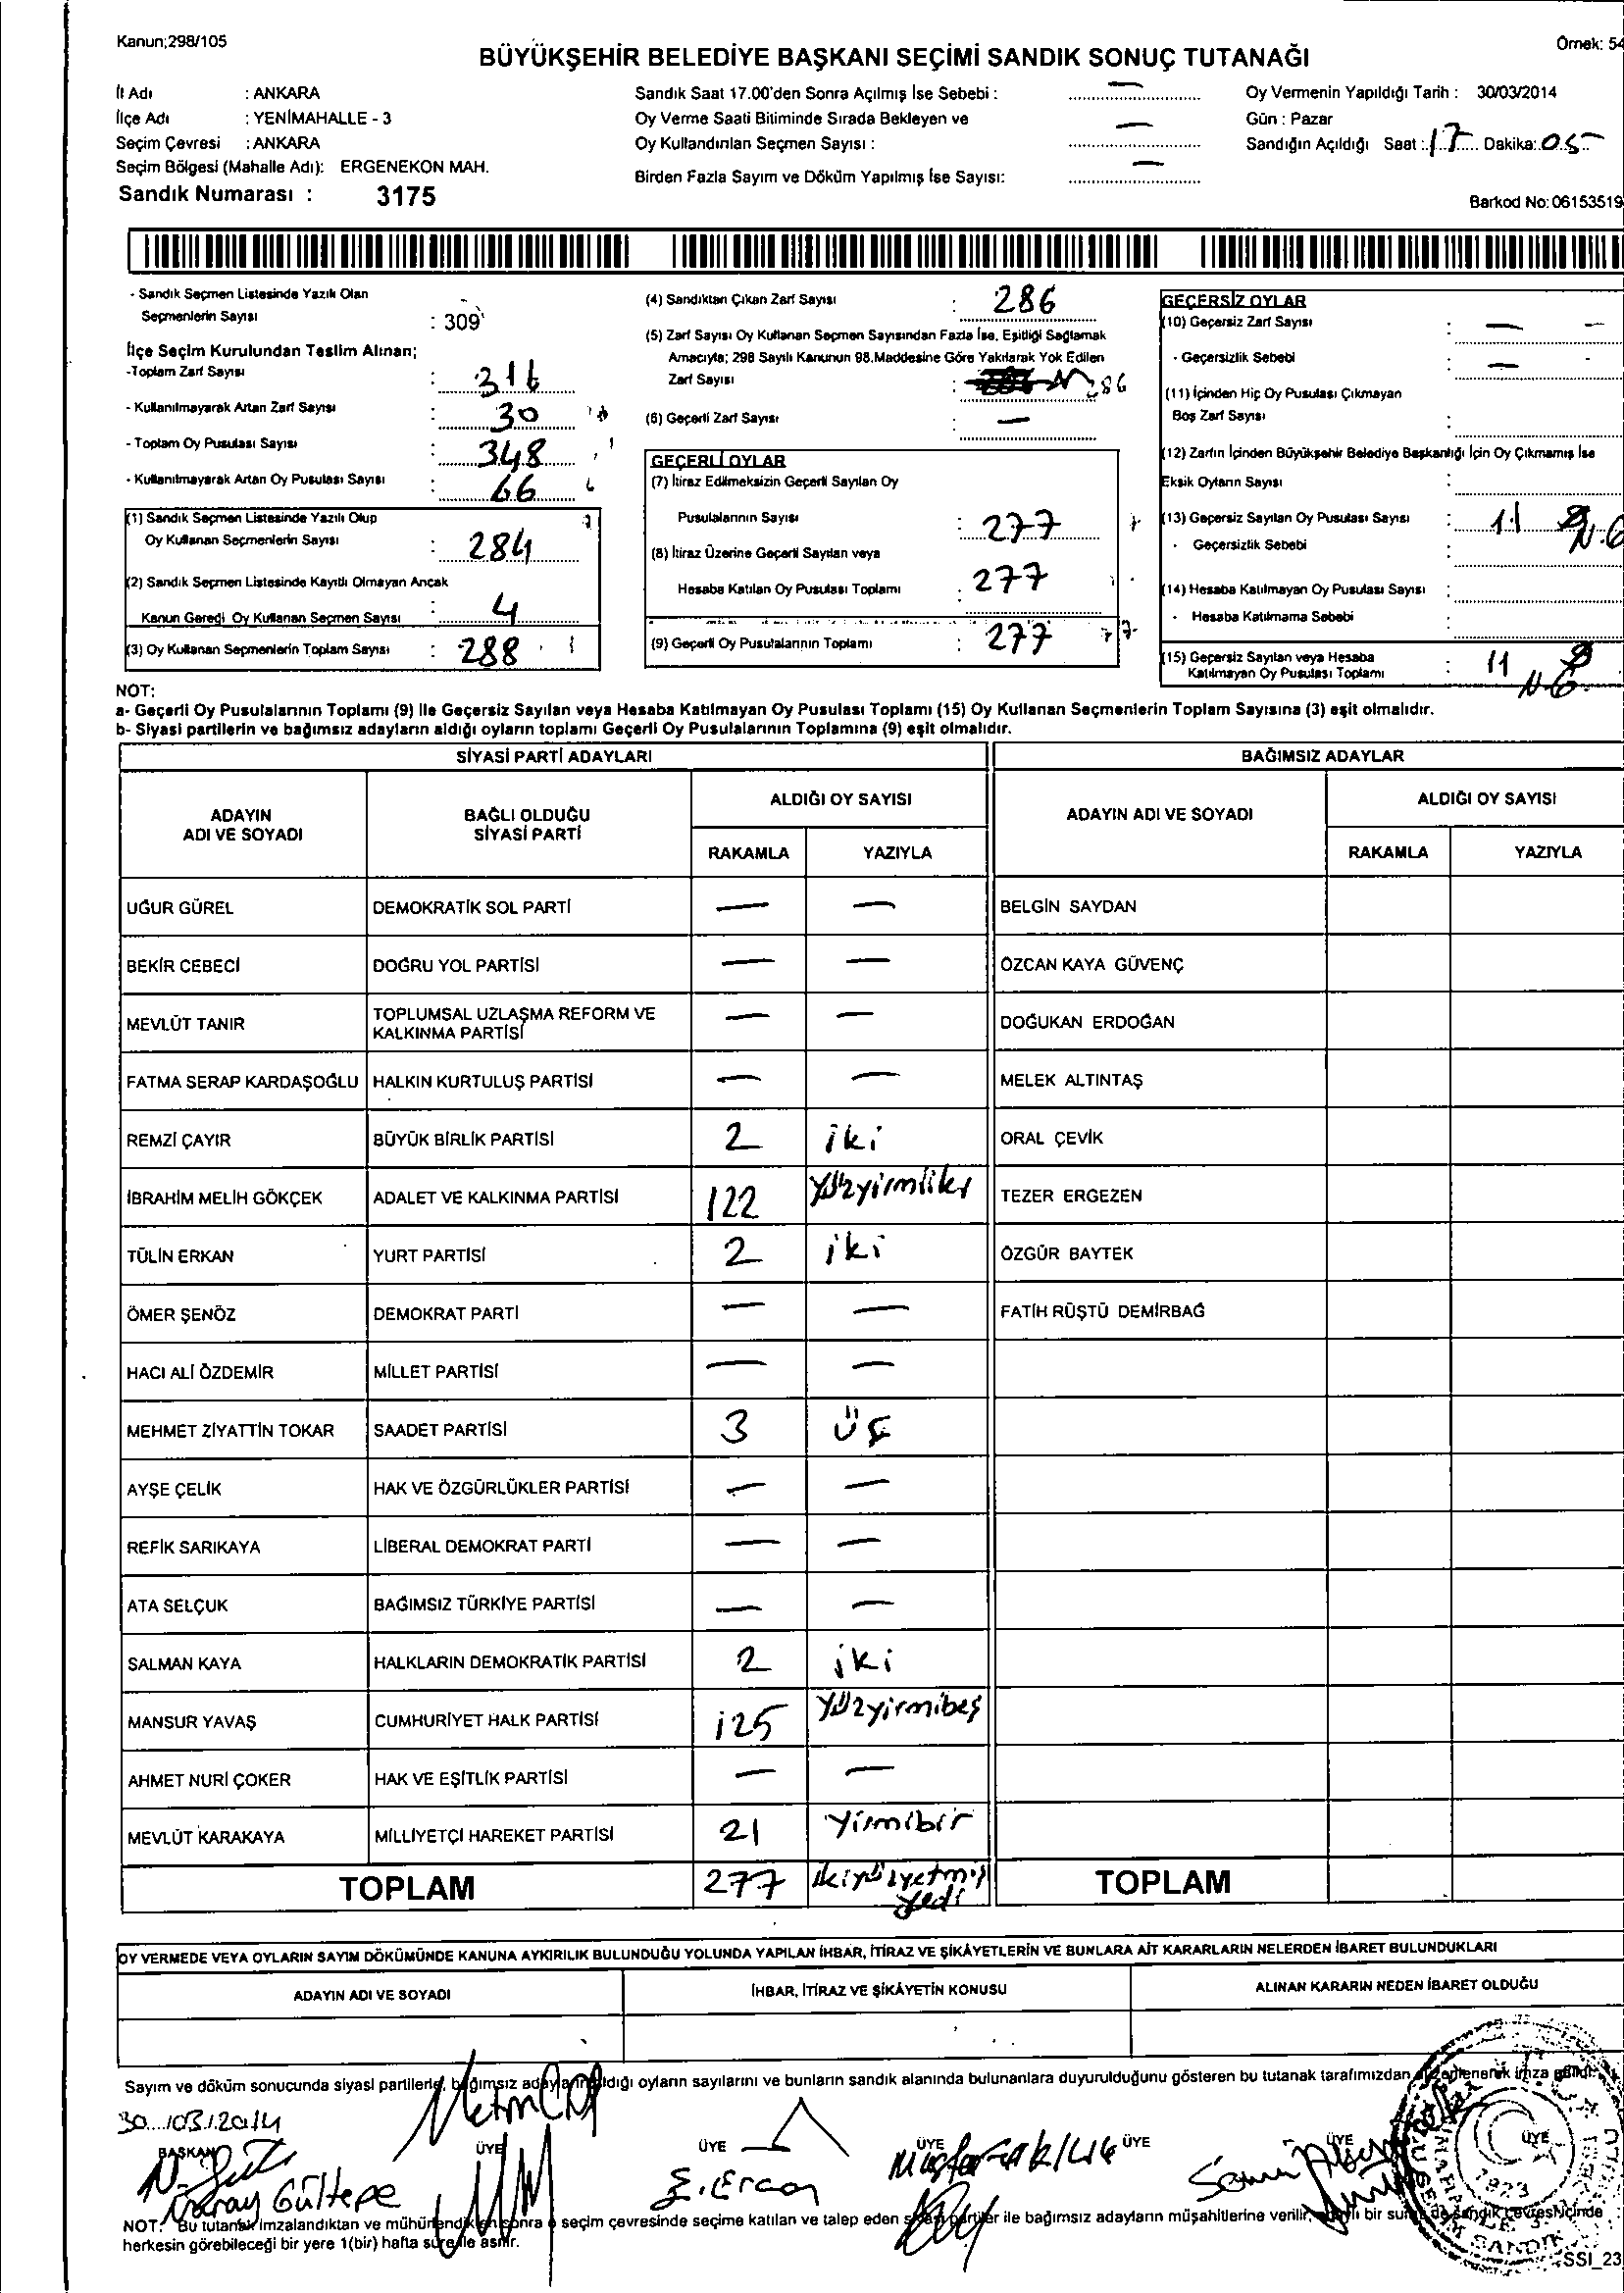 Kanun;298/105
Örnek: 54
BÜYÜKŞEHİR BELEDİYE BAŞKANI SEÇİMİ SANDIK SONUÇ TUTANAĞI
İl Adı : ANKARA
İlçe Adı : YENİMAHALLE - 3
Seçim Çevresi : ANKARA
Seçim Bölgesi (Mahalle Adı): ERGENEKON MAH.
Sandık Numarası : 3175
Sandık Saat 17.00'den Sonra Açılmış İse Sebebi : —
Oy Verme Saati Bitiminde Sırada Bekleyen ve
Oy Kullandırılan Seçmen Sayısı : —
Birden Fazla Sayım ve Döküm Yapılmış İse Sayısı: —
Oy Vermenin Yapıldığı Tarih : 30/03/2014
Gün : Pazar
Sandığın Açıldığı Saat : 17 Dakika: 05
Barkod No: 06153519
- Sandık Seçmen Listesinde Yazılı Olan
Seçmenlerin Sayısı : 309
İlçe Seçim Kurulundan Teslim Alınan;
-Toplam Zarf Sayısı : 316
- Kullanılmayarak Artan Zarf Sayısı : 30
- Toplam Oy Pusulası Sayısı : 348
- Kullanılmayarak Artan Oy Pusulası Sayısı : 66
(1) Sandık Seçmen Listesinde Yazılı Olup
Oy Kullanan Seçmenlerin Sayısı : 284
(2) Sandık Seçmen Listesinde Kayıtlı Olmayan Ancak
Kanun Gereği Oy Kullanan Seçmen Sayısı : 4
(3) Oy Kullanan Seçmenlerin Toplam Sayısı : 288
(4) Sandıktan Çıkan Zarf Sayısı : 286
(5) Zarf Sayısı Oy Kullanan Seçmen Sayısından Fazla İse, Eşitliği Sağlamak
Amacıyla; 298 Sayılı Kanunun 98.Maddesine Göre Yakılarak Yok Edilen
Zarf Sayısı : 286
(6) Geçerli Zarf Sayısı : —
GEÇERLİ OYLAR
(7) İtiraz Edilmeksizin Geçerli Sayılan Oy
Pusulalarının Sayısı : 277
(8) İtiraz Üzerine Geçerli Sayılan veya
Hesaba Katılan Oy Pusulası Toplamı : 277
(9) Geçerli Oy Pusulalarının Toplamı : 277
GEÇERSİZ OYLAR
(10) Geçersiz Zarf Sayısı : —
- Geçersizlik Sebebi : —
(11) İçinden Hiç Oy Pusulası Çıkmayan
Boş Zarf Sayısı :
(12) Zarfın İçinden Büyükşehir Belediye Başkanlığı İçin Oy Çıkmamış İse
Eksik Oyların Sayısı :
(13) Geçersiz Sayılan Oy Pusulası Sayısı : 11 N.G
- Geçersizlik Sebebi :
(14) Hesaba Katılmayan Oy Pusulası Sayısı :
- Hesaba Katılmama Sebebi :
(15) Geçersiz Sayılan veya Hesaba
Katılmayan Oy Pusulası Toplamı : 11 N.G
NOT:
a- Geçerli Oy Pusulalarının Toplamı (9) ile Geçersiz Sayılan veya Hesaba Katılmayan Oy Pusulası Toplamı (15) Oy Kullanan Seçmenlerin Toplam Sayısına (3) eşit olmalıdır.
b- Siyasi partilerin ve bağımsız adayların aldığı oyların toplamı Geçerli Oy Pusulalarının Toplamına (9) eşit olmalıdır.
SİYASİ PARTİ ADAYLARI BAĞIMSIZ ADAYLAR
ADAYIN ADI VE SOYADI BAĞLI OLDUĞU SİYASİ PARTİ ALDIĞI OY SAYISI ADAYIN ADI VE SOYADI ALDIĞI OY SAYISI
RAKAMLA YAZIYLA RAKAMLA YAZIYLA
UĞUR GÜREL DEMOKRATİK SOL PARTİ — — BELGİN SAYDAN
BEKİR CEBECİ DOĞRU YOL PARTİSİ — — ÖZCAN KAYA GÜVENÇ
MEVLÜT TANIR TOPLUMSAL UZLAŞMA REFORM VE KALKINMA PARTİSİ — — DOĞUKAN ERDOĞAN
FATMA SERAP KARDAŞOĞLU HALKIN KURTULUŞ PARTİSİ — — MELEK ALTINTAŞ
REMZİ ÇAYIR BÜYÜK BİRLİK PARTİSİ 2 iki ORAL ÇEVİK
İBRAHİM MELİH GÖKÇEK ADALET VE KALKINMA PARTİSİ 122 Yüzyirmiiki TEZER ERGEZEN
TÜLİN ERKAN YURT PARTİSİ 2 iki ÖZGÜR BAYTEK
ÖMER ŞENÖZ DEMOKRAT PARTİ — — FATİH RÜŞTÜ DEMİRBAĞ
HACI ALİ ÖZDEMİR MİLLET PARTİSİ — —
MEHMET ZİYATTİN TOKAR SAADET PARTİSİ 3 üç
AYŞE ÇELİK HAK VE ÖZGÜRLÜKLER PARTİSİ — —
REFİK SARIKAYA LİBERAL DEMOKRAT PARTİ — —
ATA SELÇUK BAĞIMSIZ TÜRKİYE PARTİSİ — —
SALMAN KAYA HALKLARIN DEMOKRATİK PARTİSİ 2 iki
MANSUR YAVAŞ CUMHURİYET HALK PARTİSİ 125 Yüzyirmibeş
AHMET NURİ ÇOKER HAK VE EŞİTLİK PARTİSİ — —
MEVLÜT KARAKAYA MİLLİYETÇİ HAREKET PARTİSİ 21 Yirmibir
TOPLAM 277 ikiyüzyetmiş yedi TOPLAM
OY VERMEDE VEYA OYLARIN SAYIM DÖKÜMÜNDE KANUNA AYKIRILIK BULUNDUĞU YOLUNDA YAPILAN İHBAR, İTİRAZ VE ŞİKÂYETLERİN VE BUNLARA AİT KARARLARIN NELERDEN İBARET BULUNDUKLARI
ADAYIN ADI VE SOYADI İHBAR, İTİRAZ VE ŞİKÂYETİN KONUSU ALINAN KARARIN NEDEN İBARET OLDUĞU
Sayım ve döküm sonucunda siyasi partilerle, bağımsız adayların aldığı oyların sayılarını ve bunların sandık alanında bulunanlara duyurulduğunu gösteren bu tutanak tarafımızdan düzenlenerek imza edildi.
30/03/2014
BAŞKAN ÜYE ÜYE ÜYE ÜYE ÜYE ÜYE
Gültepe E. Ercan
1923
NOT: Bu tutanak imzalandıktan ve mühürlendikten sonra o seçim çevresinde seçime katılan ve talep eden siyasi partiler ile bağımsız adayların müşahitlerine verilir, onaylı bir sureti de sandık çevresi içinde
herkesin görebileceği bir yere 1(bir) hafta süre ile asılır.
SSI_23